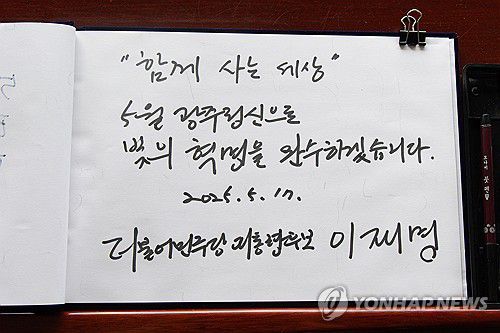 "함께 사는 세상"
5월 광주정신으로
빛의 혁명을 완수하겠습니다.
2025. 5. 17.
더불어민주당 대통령후보 이재명
YONHAPNEWS